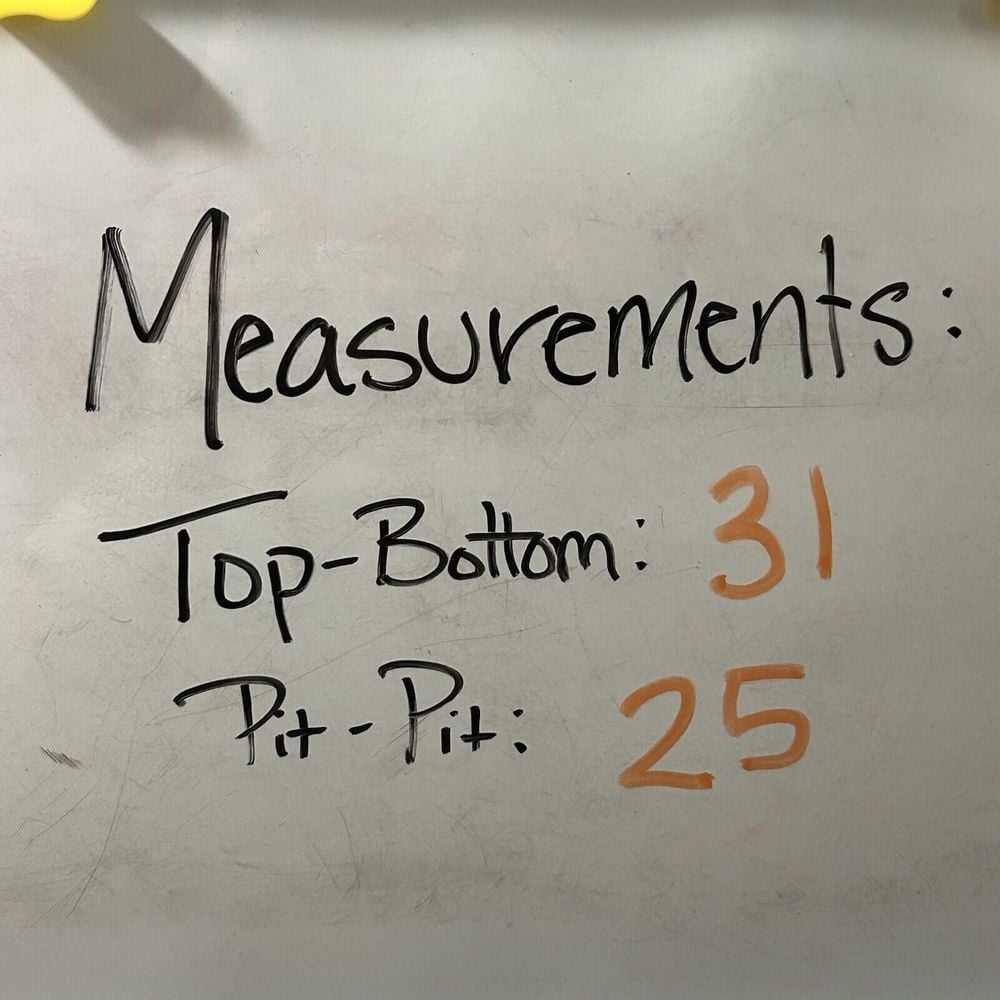 Measurements:
Top-Bottom: 31
Pit-Pit: 25